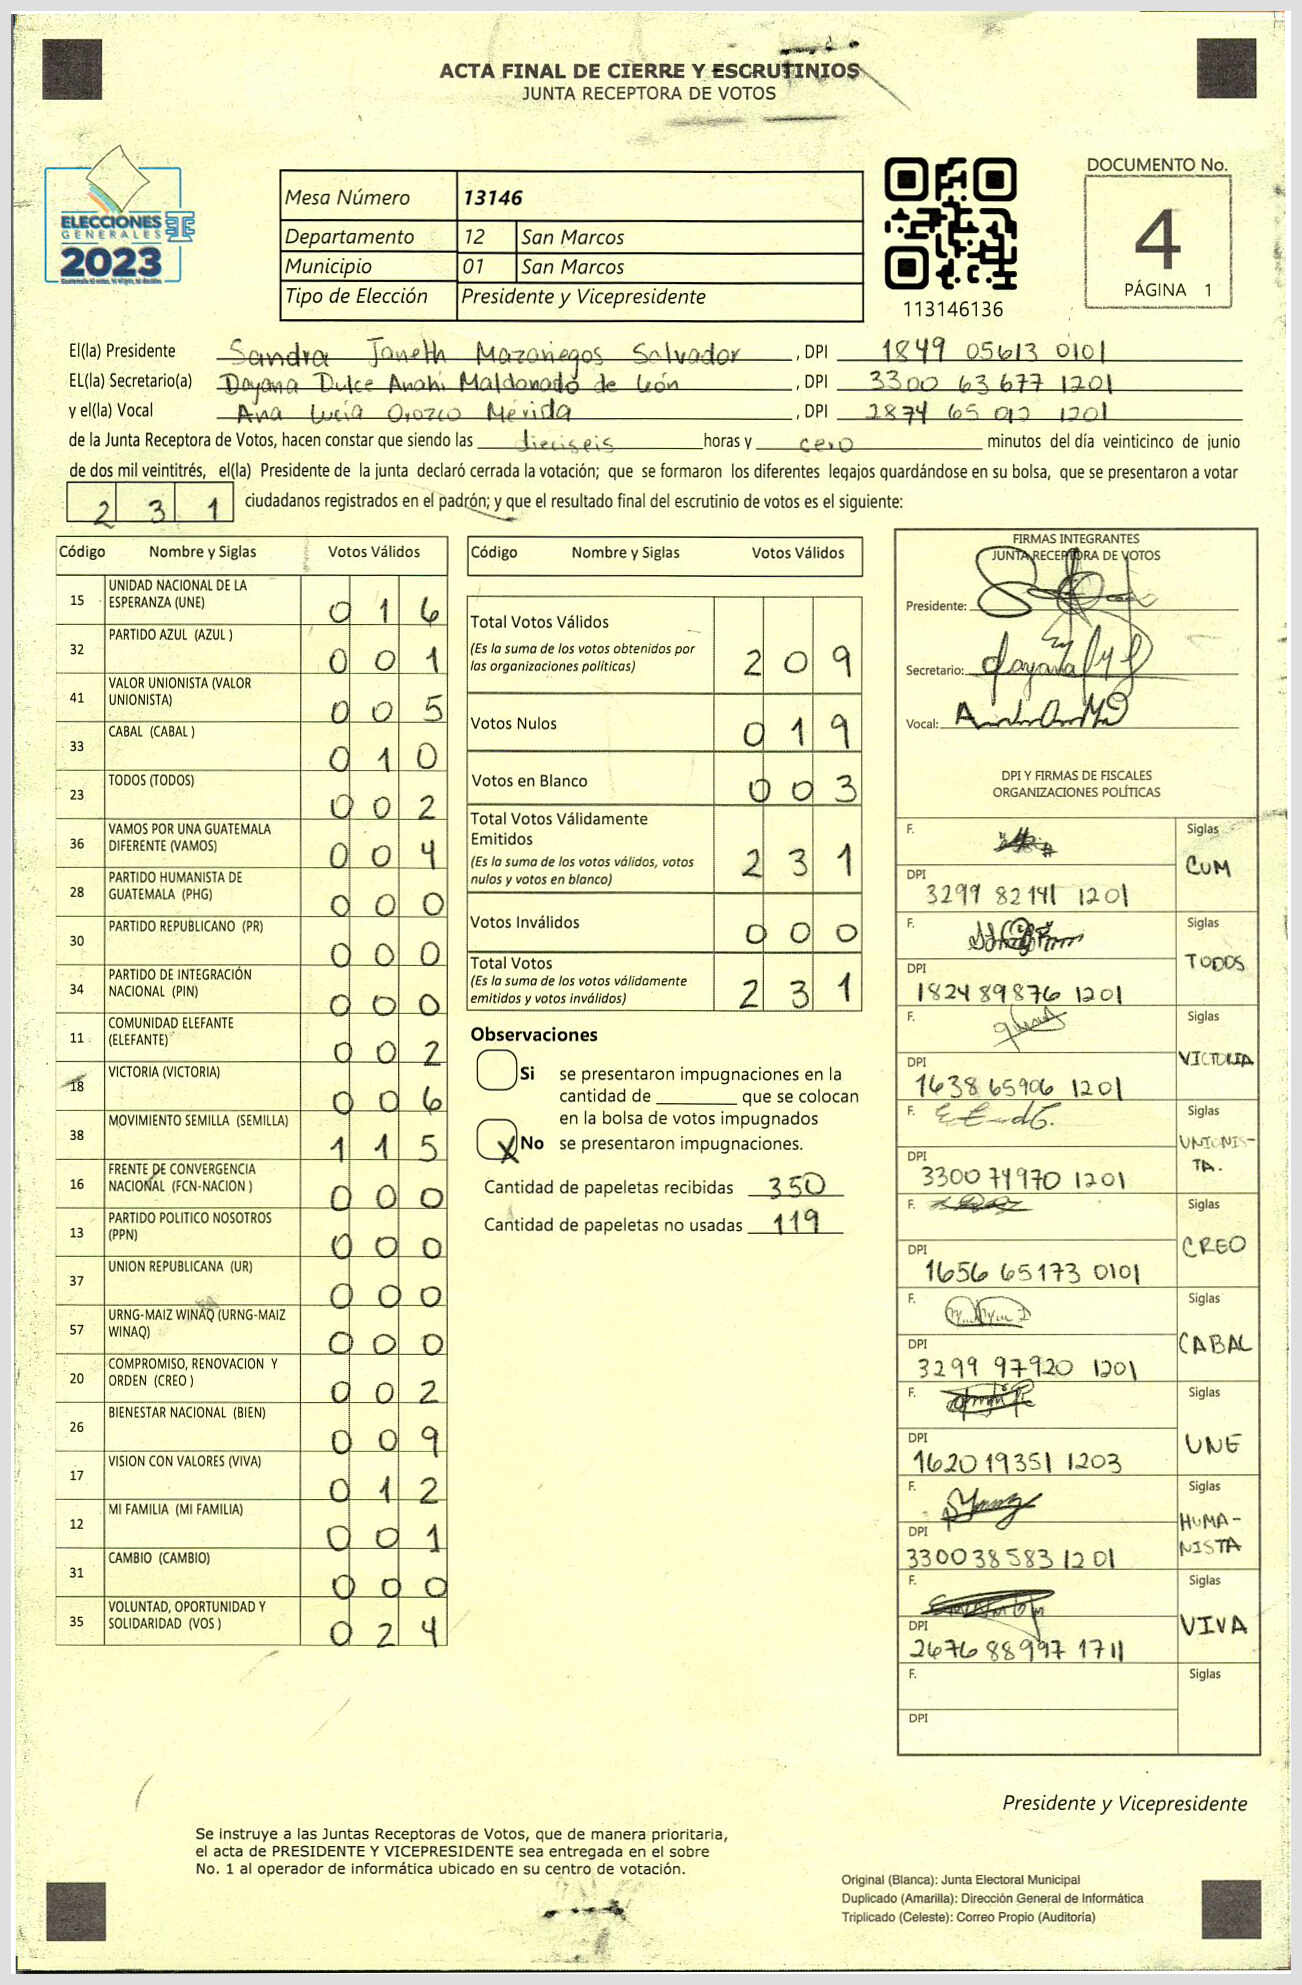 ACTA FINAL DE CIERRE Y ESCRUTINIOS
JUNTA RECEPTORA DE VOTOS
ELECCIONES
GENERALES
2023
Mesa Número 13146
Departamento 12 San Marcos
Municipio 01 San Marcos
Tipo de Elección Presidente y Vicepresidente
113146136
DOCUMENTO No.
4
PÁGINA 1
El(la) Presidente Sandra Janeth Mazariegos Salvador, DPI 1849 05613 0101
EL(la) Secretario(a) Dayana Dulce Anahi Maldonado de León, DPI 3300 63 677 1201
y el(la) Vocal Ana Lucía Orozco Mérida, DPI 2874 65 012 1201
de la Junta Receptora de Votos, hacen constar que siendo las dieciseis horas y cero minutos del día veinticinco de junio
de dos mil veintitrés, el(la) Presidente de la junta declaró cerrada la votación; que se formaron los diferentes legajos quardándose en su bolsa, que se presentaron a votar
231 ciudadanos registrados en el padrón; y que el resultado final del escrutinio de votos es el siguiente:
Código Nombre y Siglas Votos Válidos
15 UNIDAD NACIONAL DE LA ESPERANZA (UNE) 016
32 PARTIDO AZUL (AZUL ) 001
41 VALOR UNIONISTA (VALOR UNIONISTA) 005
33 CABAL (CABAL ) 010
23 TODOS (TODOS) 002
36 VAMOS POR UNA GUATEMALA DIFERENTE (VAMOS) 004
28 PARTIDO HUMANISTA DE GUATEMALA (PHG) 000
30 PARTIDO REPUBLICANO (PR) 000
34 PARTIDO DE INTEGRACIÓN NACIONAL (PIN) 000
11 COMUNIDAD ELEFANTE (ELEFANTE) 002
18 VICTORIA (VICTORIA) 006
38 MOVIMIENTO SEMILLA (SEMILLA) 115
16 FRENTE DE CONVERGENCIA NACIONAL (FCN-NACION ) 000
13 PARTIDO POLITICO NOSOTROS (PPN) 000
37 UNION REPUBLICANA (UR) 000
57 URNG-MAIZ WINAQ (URNG-MAIZ WINAQ) 000
20 COMPROMISO, RENOVACION Y ORDEN (CREO ) 002
26 BIENESTAR NACIONAL (BIEN) 009
17 VISION CON VALORES (VIVA) 012
12 MI FAMILIA (MI FAMILIA) 001
31 CAMBIO (CAMBIO) 000
35 VOLUNTAD, OPORTUNIDAD Y SOLIDARIDAD (VOS ) 024
Código Nombre y Siglas Votos Válidos
Total Votos Válidos 209
(Es la suma de los votos obtenidos por
las organizaciones políticas)
Votos Nulos 019
Votos en Blanco 003
Total Votos Válidamente
Emitidos 231
(Es la suma de los votos válidos, votos
nulos y votos en blanco)
Votos Inválidos 000
Total Votos 231
(Es la suma de los votos válidamente
emitidos y votos inválidos)
Observaciones
Si se presentaron impugnaciones en la
cantidad de ________ que se colocan
en la bolsa de votos impugnados
X No se presentaron impugnaciones.
Cantidad de papeletas recibidas 350
Cantidad de papeletas no usadas 119
FIRMAS INTEGRANTES
JUNTA RECEPTORA DE VOTOS
Presidente:
Secretario:
Vocal:
DPI Y FIRMAS DE FISCALES
ORGANIZACIONES POLÍTICAS
F. Siglas CUM
DPI 3299 82141 1201
F. Siglas TODOS
DPI 1824 89876 1201
F. Siglas VICTORIA
DPI 1638 65906 1201
F. Siglas UNIONIS-
TA.
DPI 3300 74970 1201
F. Siglas CREO
DPI 1656 65173 0101
F. Siglas CABAL
DPI 3299 97920 1201
F. Siglas UNE
DPI 1620 19351 1203
F. Siglas HUMA-
NISTA
DPI 3300 38583 1201
F. Siglas VIVA
DPI 2676 88997 1711
F. Siglas
DPI
Presidente y Vicepresidente
Se instruye a las Juntas Receptoras de Votos, que de manera prioritaria,
el acta de PRESIDENTE Y VICEPRESIDENTE sea entregada en el sobre
No. 1 al operador de informática ubicado en su centro de votación.
Original (Blanca): Junta Electoral Municipal
Duplicado (Amarilla): Dirección General de Informática
Triplicado (Celeste): Correo Propio (Auditoría)